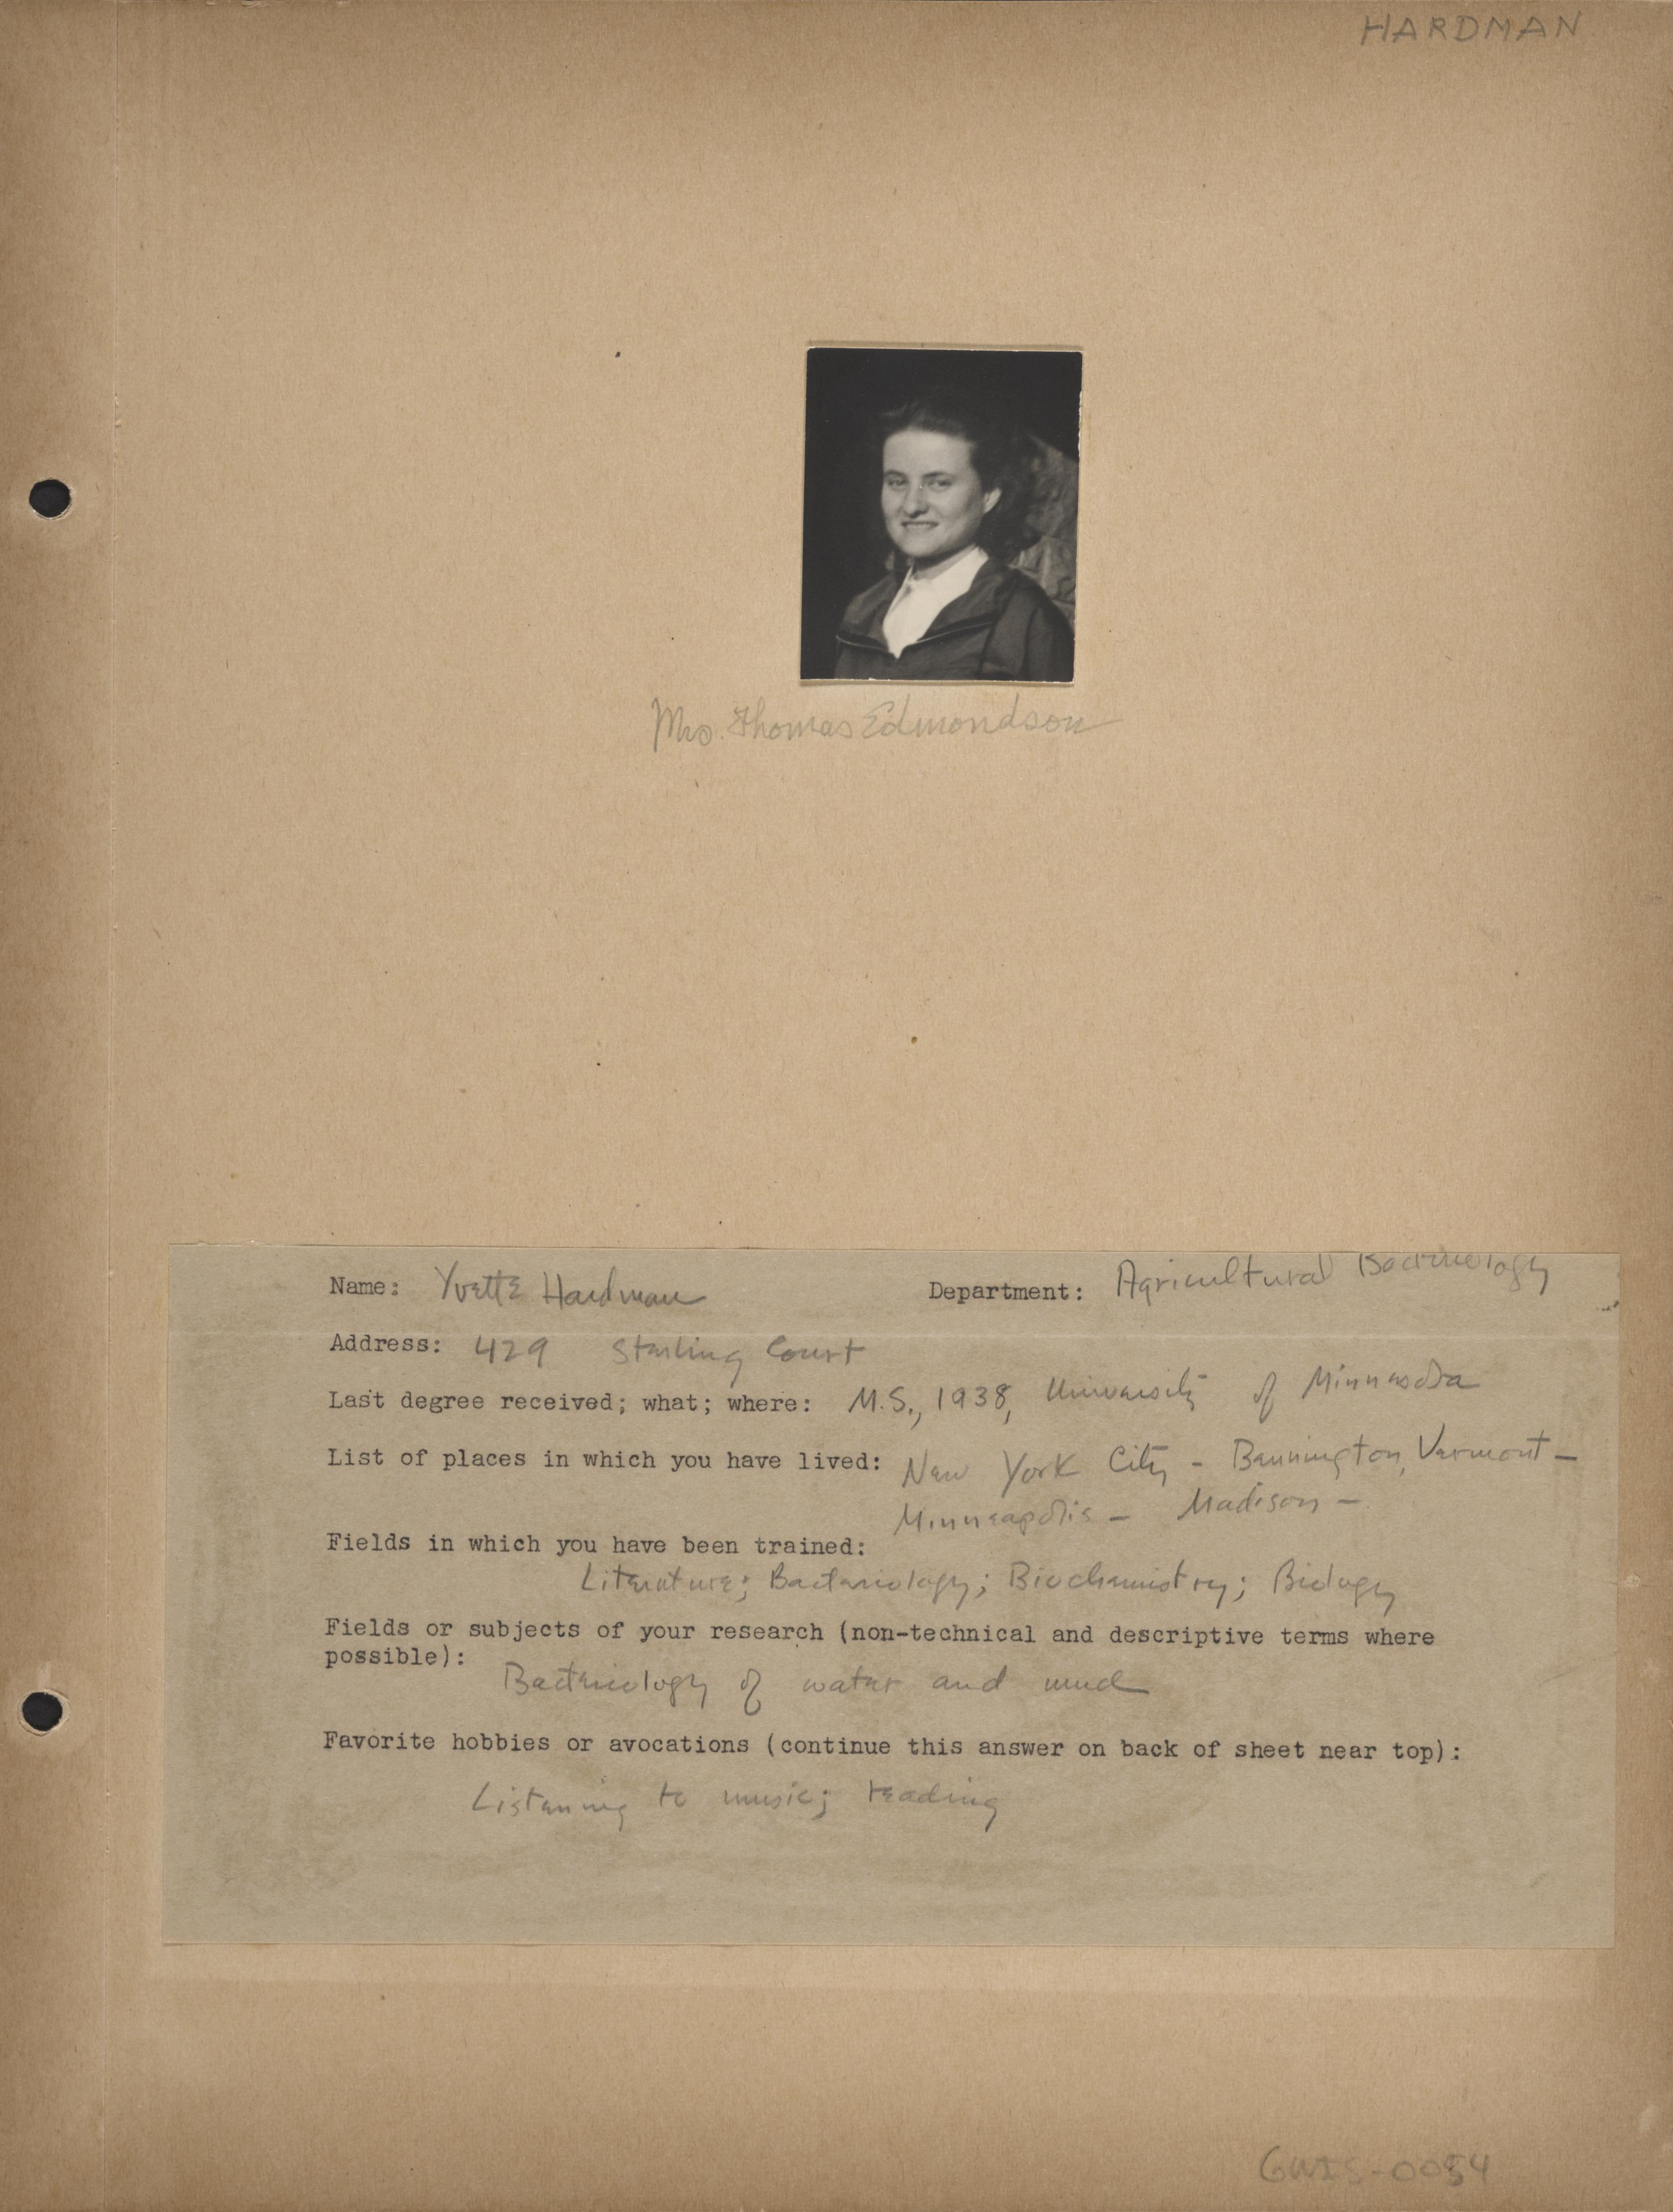 HARDMAN
Mrs. Thomas Edmondson
Name: Yvette Hardman Department: Agricultural Bacteriology
Address: 429 Sterling Court
Last degree received; what; where: M.S., 1938, University of Minnesota
List of places in which you have lived: New York City - Bennington, Vermont -
Minneapolis - Madison -
Fields in which you have been trained:
Literature; Bacteriology; Biochemistry; Biology
Fields or subjects of your research (non-technical and descriptive terms where
possible):
Bacteriology of water and mud
Favorite hobbies or avocations (continue this answer on back of sheet near top):
Listening to music; reading
GWIS-0054